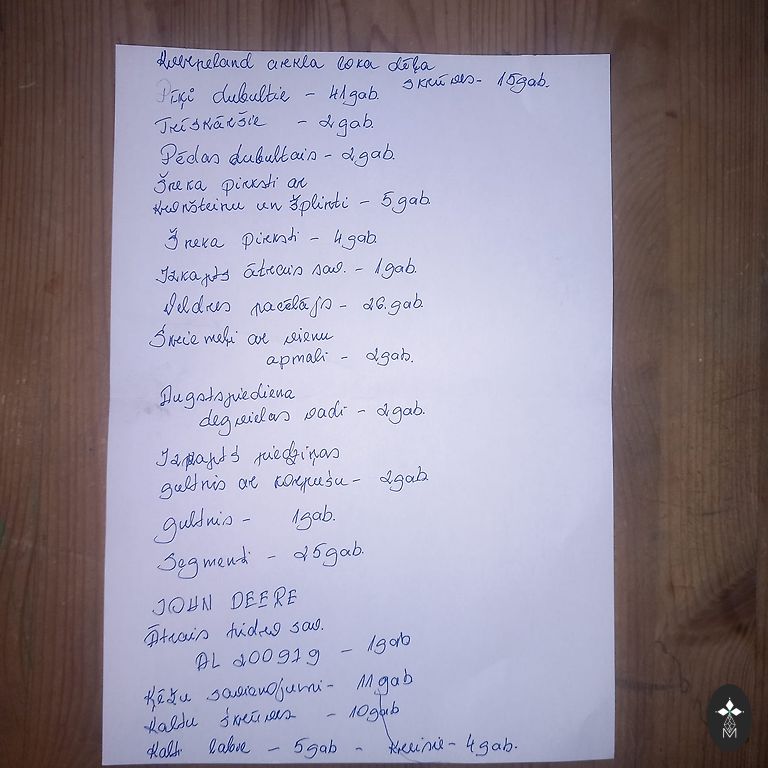 Kverneland arkla loka dēļa
skrūves - 15gab.
Pīķi dubultie - 41gab.
Trīskāršie - 2gab.
Pēdas dubultais - 2gab.
Šneka pirksti ar
kronšteinu un šplinti - 5gab.
Šneka pirksti - 4gab.
Izkapts ātrais sav. - 1gab.
Veldres pacēlājs - 26.gab.
Skriemeļi ar vienu
apmali - 2gab.
Augstspiediena
degvielas vadi - 2gab.
Izkapts piedziņas
gultnis ar korpusu - 2gab.
gultnis - 1gab.
Segmenti - 25gab.
JOHN DEERE
Ātrais hidro sav.
AL 200919 - 1gab
Ķēžu savienojumi - 11gab
Kaltu skrūves - 10gab
Kalti labie - 5gab - Kreisie - 4gab.